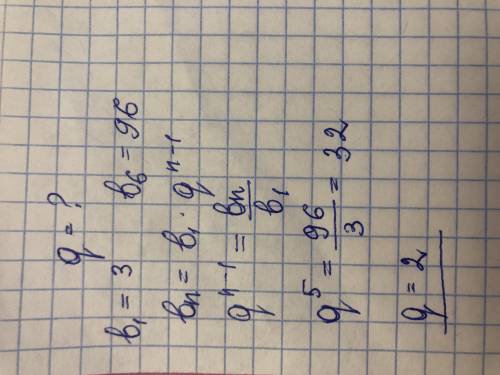 q = ?
b₁ = 3 b₆ = 96
bₙ = b₁ · qⁿ⁻¹
qⁿ⁻¹ = bₙ/b₁
q⁵ = 96/3 = 32
q = 2